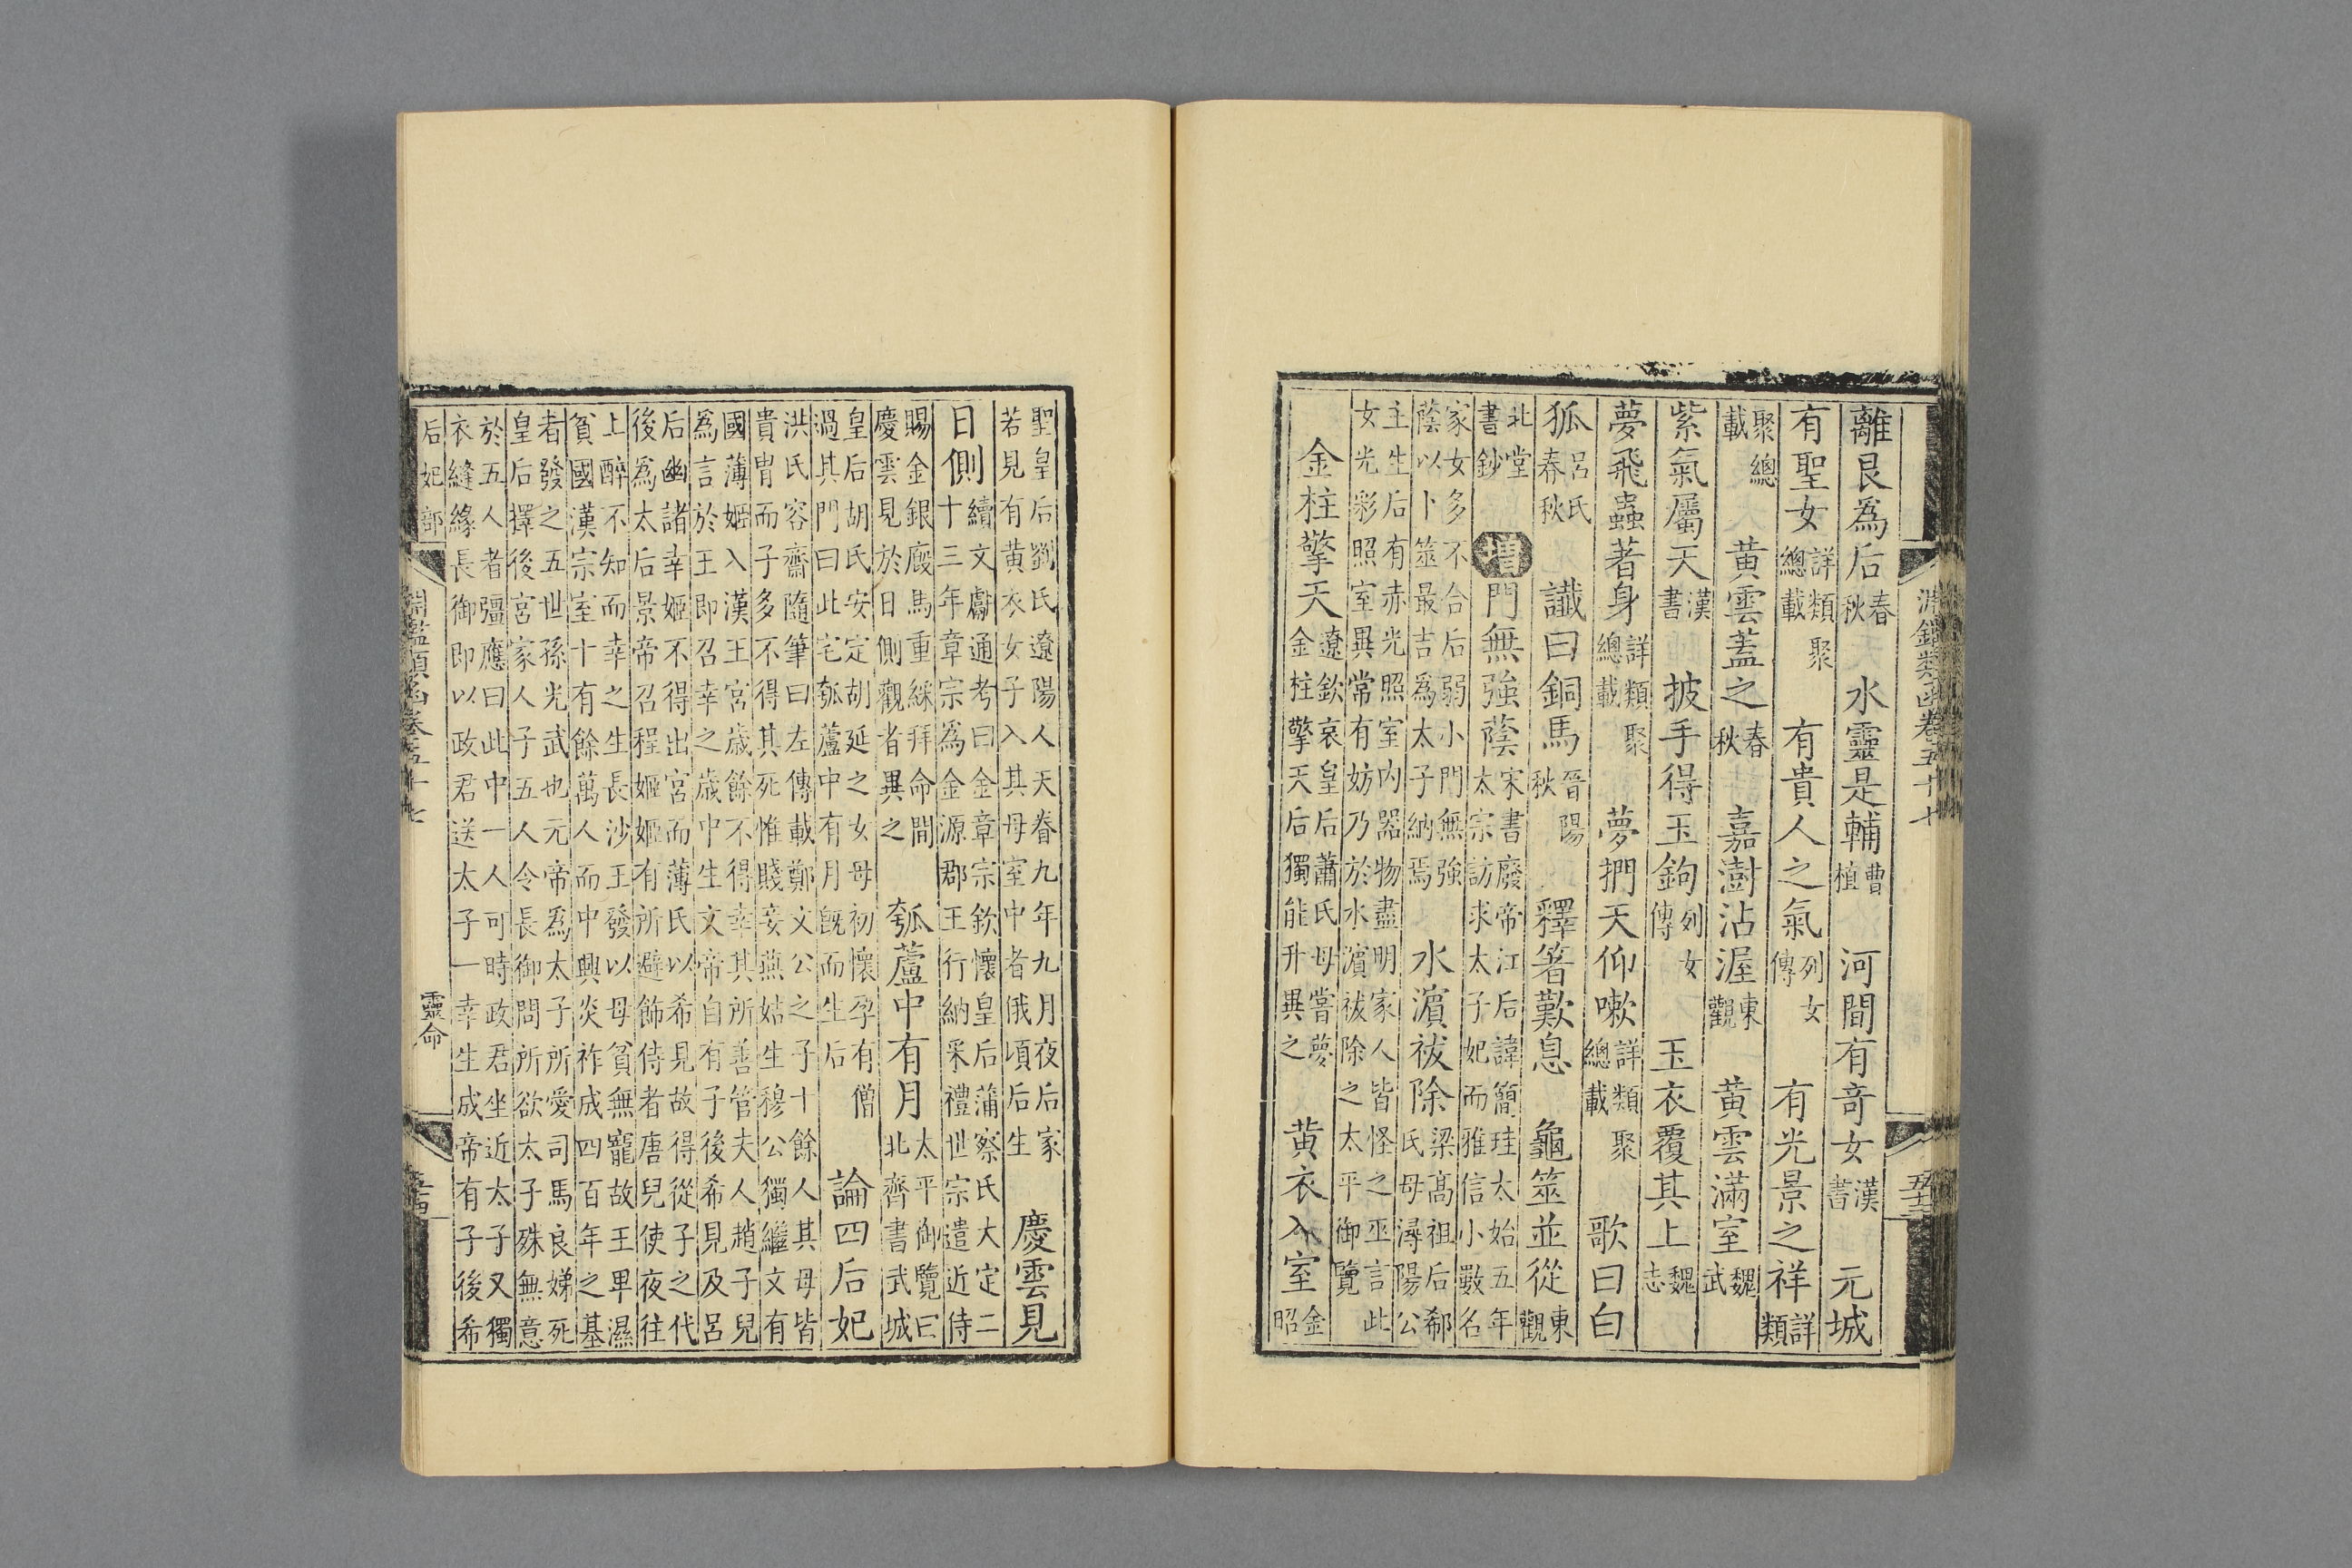 淵鑑類函卷五十七
離艮爲后春秋 水靈是輔曹植 河間有奇女漢書 元城
有聖女詳類聚總載 有貴人之氣列女傳 有光景之祥詳類
聚總載 黃雲蓋之春秋 嘉澍沾渥東觀 黃雲滿室魏武
紫氣屬天漢書 披手得玉鉤列女傳 玉衣覆其上魏志
夢飛蟲著身詳類聚總載 夢捫天仰嗽詳類聚總載 歌曰白
狐呂氏春秋 讖曰銅馬晉陽秋 釋箸歎息 龜筮並從東觀
北堂書鈔 增門無強蔭宋書廢帝江后諱簡珪太始五年太宗訪求太子妃而雅信小數名
家女多不合后弱小門無強蔭以卜筮最吉爲太子納焉 水濵祓除梁高祖后郗氏母潯陽公
主生后有赤光照室内器物盡明家人皆怪之巫言此女光彩照室異常有妨乃於水濵祓除之太平御覽
金柱擎天遼欽哀皇后蕭氏母嘗夢金柱擎天后獨能升異之 黃衣入室金昭
聖皇后劉氏遼陽人天眷九年九月夜后家若見有黃衣女子入其母室中者俄頃后生 慶雲見
日側續文獻通考曰金章宗欽懷皇后蒲察氏大定二十三年章宗爲金源郡王行納采禮世宗遣近侍
賜金銀廄馬重綵拜命間慶雲見於日側觀者異之 瓠蘆中有月太平御覽曰北齊書武城
皇后胡氏安定胡延之女母初懷孕有僧過其門曰此宅瓠蘆中有月旣而生后 論四后妃
洪氏容齋隨筆曰左傳載鄭文公之子十餘人其母皆貴胄而子多不得其死惟賤妾燕姞生穆公獨繼文有
國薄姬入漢王宮歲餘不得幸其所善管夫人趙子兒爲言於王王即召幸之歲中生文帝自有子後希見及呂
后幽諸幸姬不得出宮而薄氏以希見故得從子之代後爲太后景帝召程姬姬有所避飾侍者唐兒使夜往
上醉不知而幸之生長沙王發以母貧無寵故王卑濕貧國漢宗室十有餘萬人而中興炎祚成四百年之基
者發之五世孫光武也元帝爲太子所愛司馬良娣死皇后擇後宮家人子五人令長御問所欲太子殊無意
於五人者彊應曰此中一人可時政君坐近太子又獨衣縫緣長御即以政君送太子一幸生成帝有子後希
后妃部
淵鑑類函卷五十七
靈命